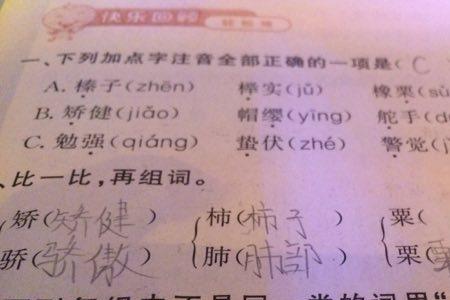 快乐回顾
一、下列加点字注音全部正确的一项是( C
A. 榛子(zhēn) 榉实(jǔ) 橡栗(sù
B. 矫健(jiǎo) 帽缨(yīng) 舵手(d
C. 勉强(qiáng) 蛰伏(zhé) 警觉(j
、比一比,再组词。
矫(矫健) 柿(柿子) 粟(
骄(骄傲) 肺(肺部) 栗(